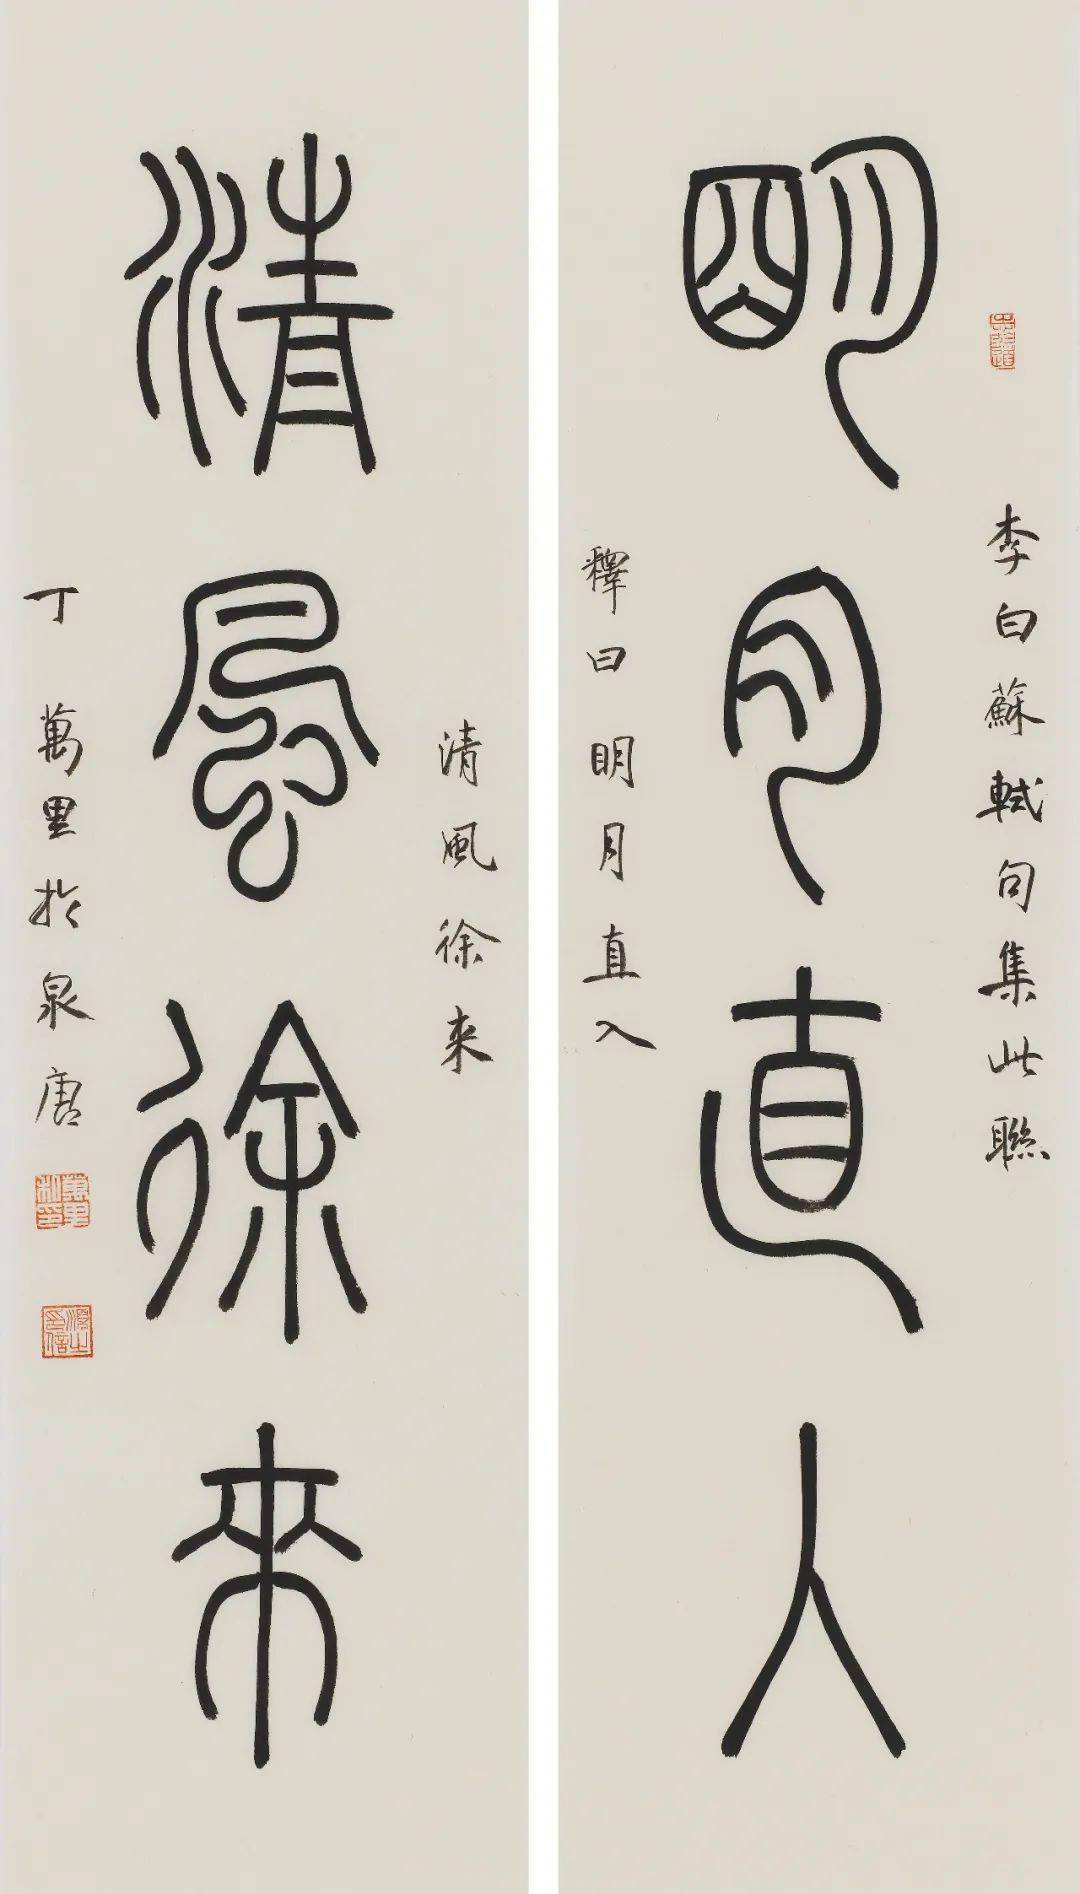 李白蘇軾句集此聯
明月直入
釋曰明月直入
清風徐來
清風徐來
丁萬里於泉唐